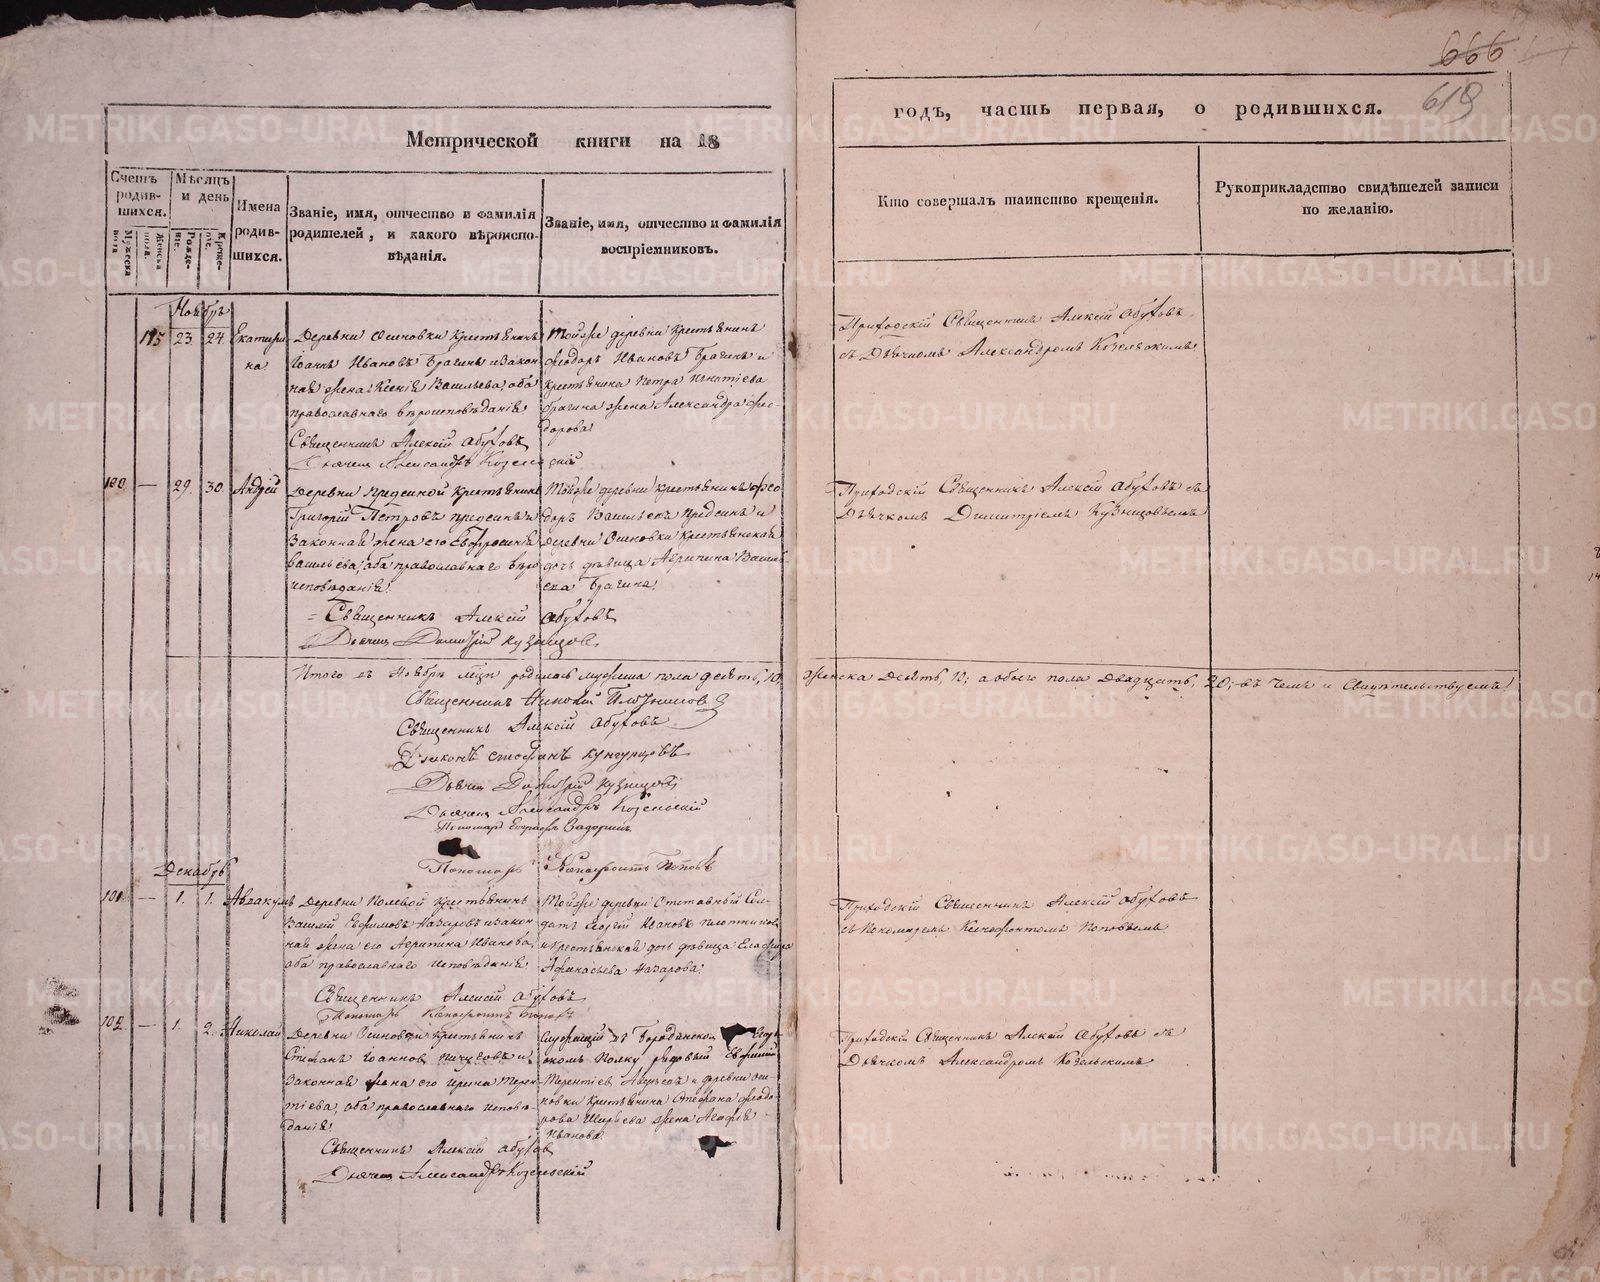 666
619
Метрической книги на 18
годъ, часть первая, о родившихся.
Счетъ родившихся.
Мужеска пола
Женска пола.
Мѣсяцъ и день
Рожденіе.
Крещеніе.
Имена родившихся.
Званіе, имя, отчество и фамилія родителей, и какого вѣроисповѣданія.
Званіе, имя, отчество и фамилія воспріемниковъ.
Кто совершалъ таинство крещенія.
Рукоприкладство свидѣтелей записи по желанію.
Ноябрь
23. 24 Екатерина
Деревни Осиновки Крестьянинъ
Іоаннъ Ивановъ Брагинъ и закон-
ная жена Ксенія Васильева, оба
православнаго вѣроисповѣданія
Священникъ Алексій Абуховъ
Дьячекъ Александръ Козельскій
Тойже деревни крестьянинъ
Ѳеодоръ Ивановъ Брагинъ и
крестьянина Петра Игнатіева
Брагина жена Александра Ѳео-
дорова
Приходскій Священникъ Алексій Абуховъ
съ Дьячкомъ Александромъ Козельскимъ
100 — 29. 30. Андрей
Деревни крестьянинъ
Григорій Петровъ и
законная жена его
Васильева, оба православнаго вѣро
исповѣданія
Священникъ Алексій Абуховъ
Дьячекъ Димитрій Кузнецовъ
Тойже деревни крестьянинъ Ѳео-
доръ Васильевъ и
деревни Осиновки Крестьянская
дочь дѣвица Агрипина Василь-
ева Брагина
Приходскій Священникъ Алексій Абуховъ съ
Дьячкомъ Димитріемъ Кузнецовымъ
Итого въ Ноябрѣ мцѣ родилось мужеска пола десять, 10,
женска десять, 10; а обоего пола двадцать, 20, въ чемъ и Свидѣтельствуемъ
Священникъ
Священникъ Алексій Абуховъ
Діаконъ Стефанъ Кунгурцовъ
Дьячекъ Димитрій Кузнецовъ
Дьячекъ Александръ Козельскій
Пономарь
Пономарь Ксенофонтъ Поповъ
Декабрь
101. — 1. 1. Аввакумъ
Деревни Полевой крестьянинъ
Василій Евфимовъ Назаровъ и закон-
ная жена его Агрипина Иванова,
оба православнаго исповѣданія
Священникъ Алексій Абуховъ
Пономарь Ксенофонтъ Поповъ
Тойже деревни Отставный Сол-
датъ Георгій Ивановъ Плотниковъ
и крестьянская дочь дѣвица
Афанасьева Назарова
Приходскій Священникъ Алексій Абуховъ
съ Пономаремъ Ксенофонтомъ Поповымъ
102 — 1. 2. Николай
Деревни Осиновки Крестьянинъ
Стефанъ Іоанновъ и
законная жена его Ирина Терен-
тіева, оба православнаго исповѣ-
данія
Священникъ Алексій Абуховъ
Дьячекъ Александръ Козельскій
Служащій въ Бородинском Егер-
скомъ Полку рядовый Евфимій
Терентіев и деревни Оси-
новки крестьянина Стефана Ѳеодо-
рова жена Агафія
Иванова
Приходскій Священникъ Алексій Абуховъ съ
Дьячкомъ Александромъ Козельскимъ
METRIKI.GASO-URAL.RU